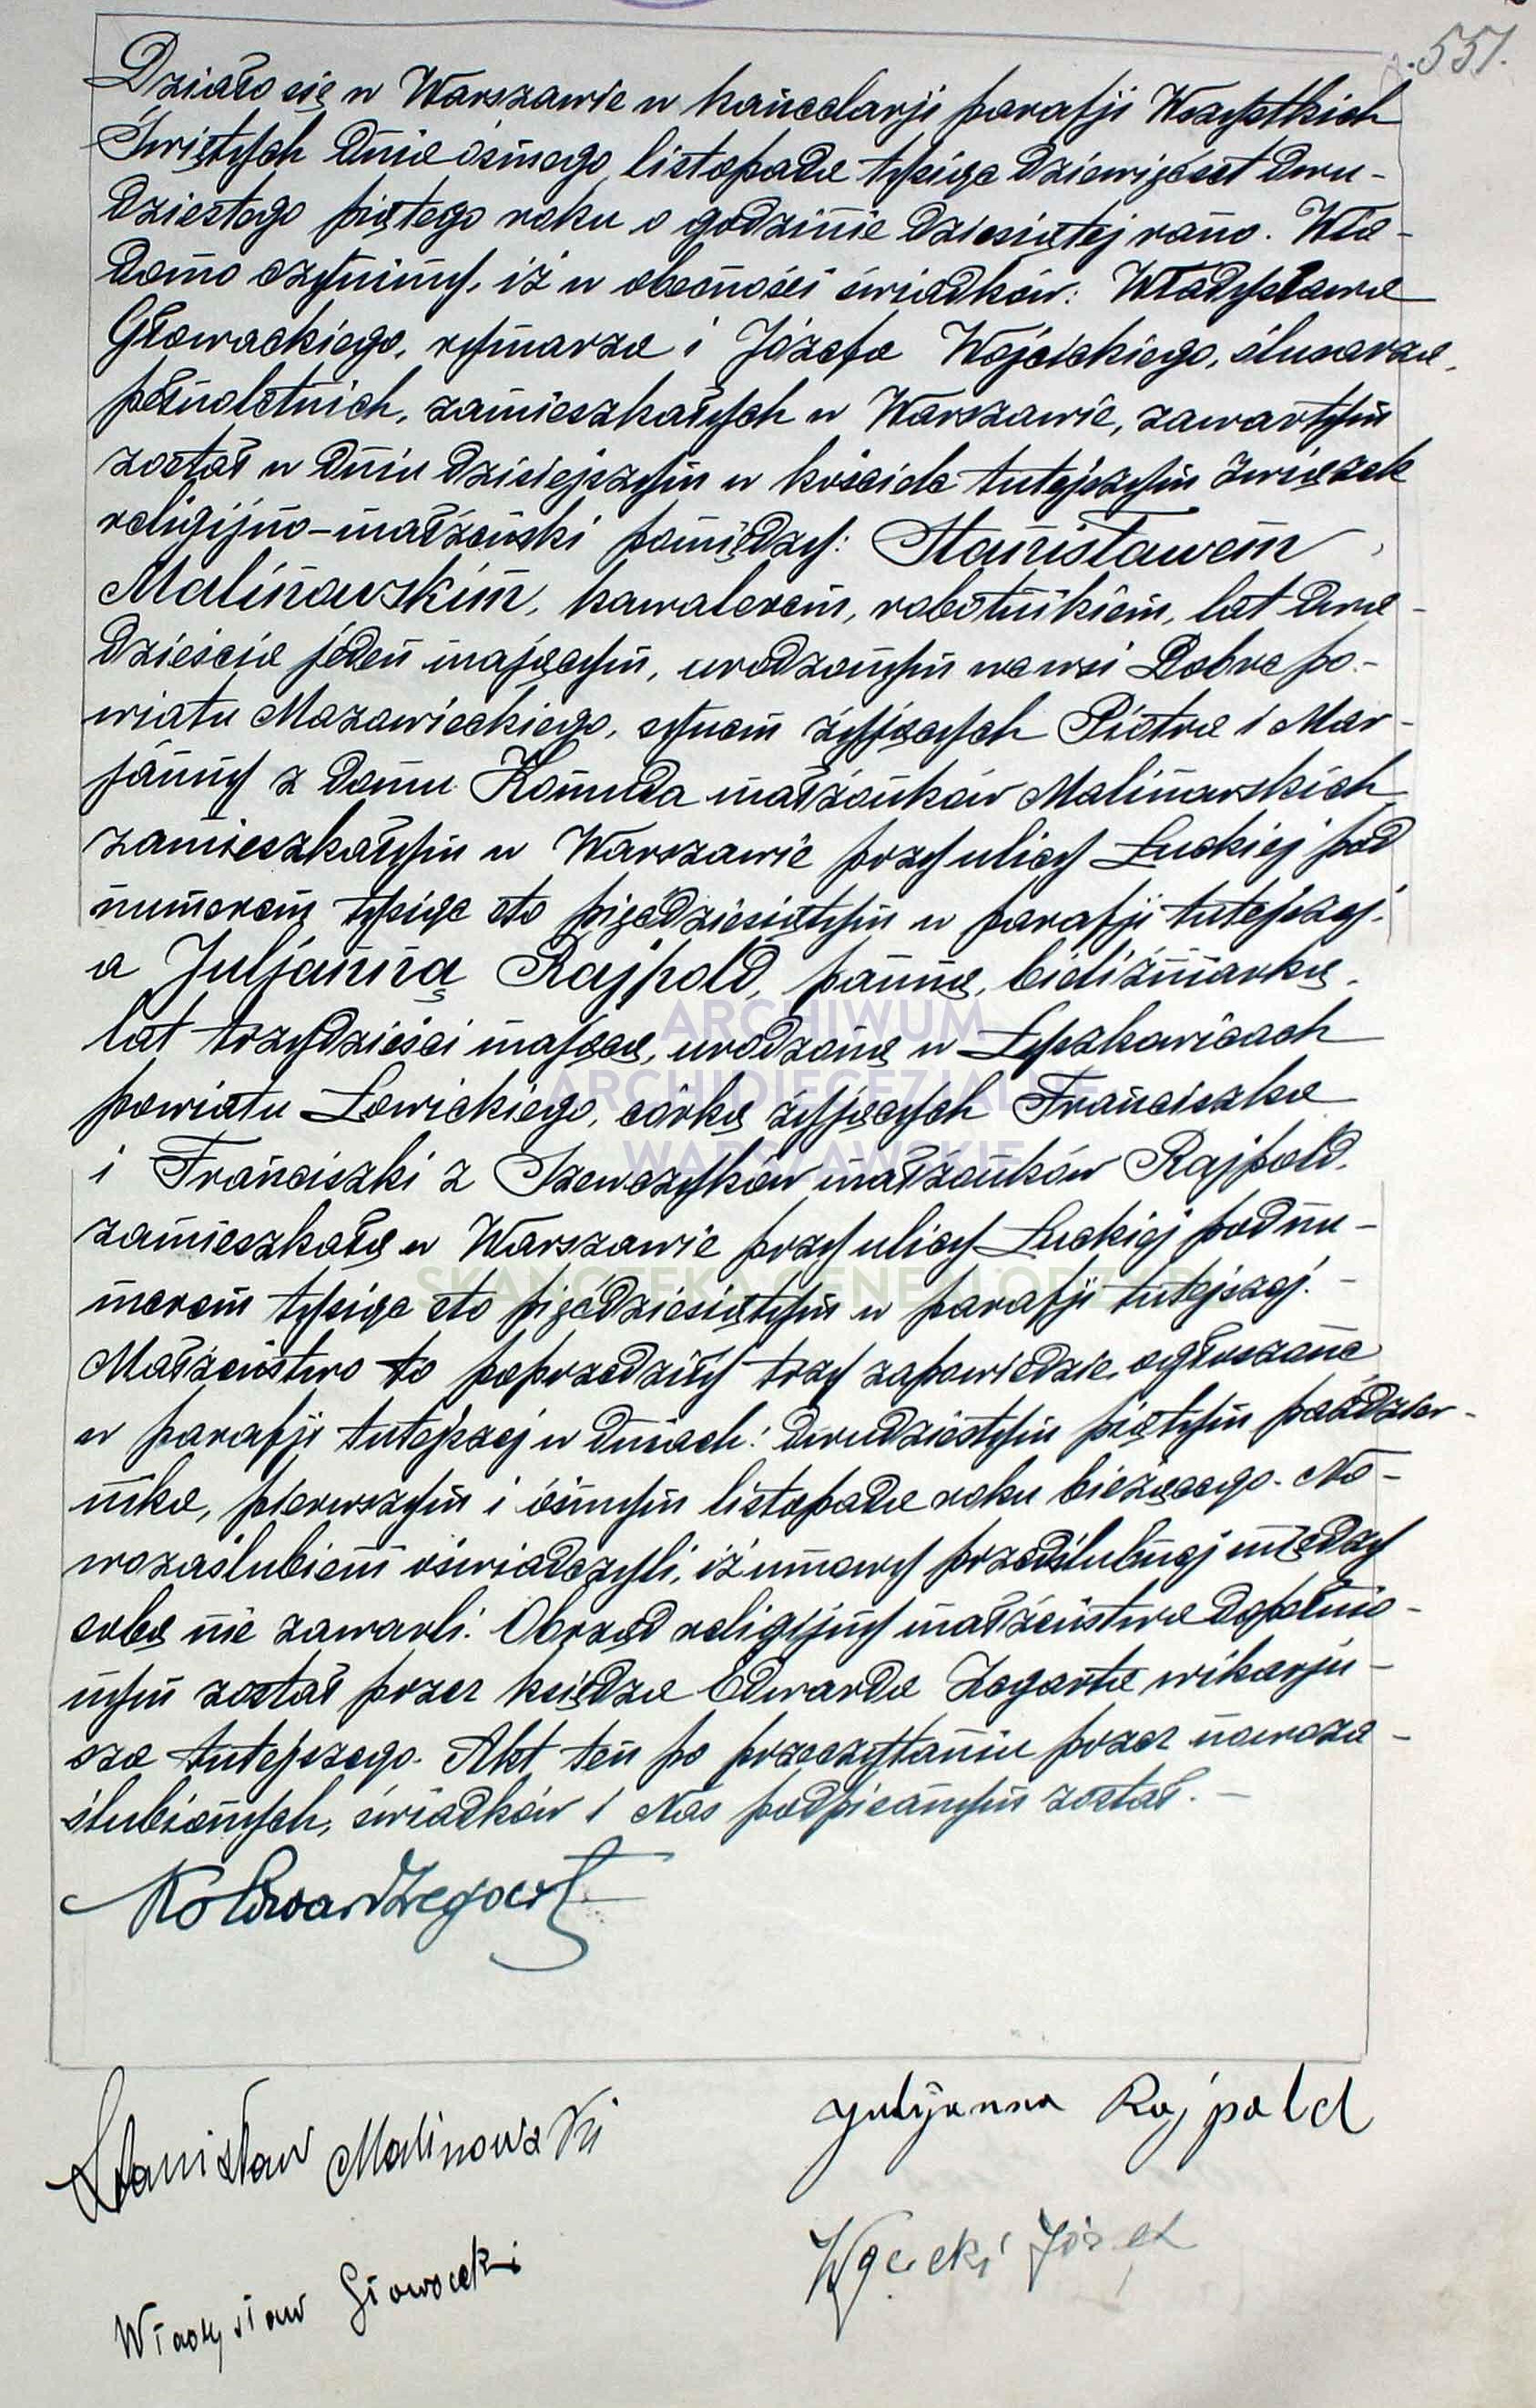 551.
Działo się w Warszawie w kancelarji parafji Wszystkich
Świętych dnia ósmego listopada tysiąc dziewięćset dwu-
dziestego piątego roku o godzinie dziesiątej rano. Wia-
domo czynimy, iż w obecności świadków: Władysława
Głowackiego, rymarza i Józefa Wójcickiego, ślusarza,
pełnoletnich, zamieszkałych w Warszawie, zawartym
został w dniu dzisiejszym w kościele tutejszym związek
religijno-małżeński pomiędzy: Stanisławem
Malinowskim, kawalerem, robotnikiem, lat dwa-
dzieścia jeden mającym, urodzonym we wsi Dobre po-
wiatu Mazowieckiego, synem żyjących Piotra i Mar-
janny z domu Komuda małżonków Malinowskich
zamieszkałym w Warszawie przy ulicy Łuckiej pod
numerem tysiąc sto pięćdziesiątym w parafji tutejszej.
a Juljanną Rajpold, panną, bieliźniarką,
lat trzydzieści mającą, urodzoną w Łyszkowicach
powiatu Łowickiego, córką żyjących Franciszka
i Franciszki z Szewczyków małżonków Rajpold,
zamieszkałą w Warszawie przy ulicy Łuckiej pod nu-
merem tysiąc sto pięćdziesiątym w parafji tutejszej. -
Małżeństwo to poprzedziły trzy zapowiedzie, ogłoszone
w parafji tutejszej w dniach: dwudziestym piątym paździer-
nika, pierwszym i ósmym listopada roku bieżącego. No-
wozaślubieni oświadczyli, iż umowy przedślubnej między
sobą nie zawarli. Obrząd religijny małżeństwa dopełnio-
nym został przez księdza Edwarda Żegarta wikarju-
sza tutejszego. Akt ten po przeczytaniu przez nowoza-
ślubionych, świadków i Nas podpisanym został. -
Stanisław Malinowski
Juljanna Rajpold
Józef
Władysław Głowacki
ARCHIWUM
ARCHIDIECEZJALNE
WARSZAWSKIE